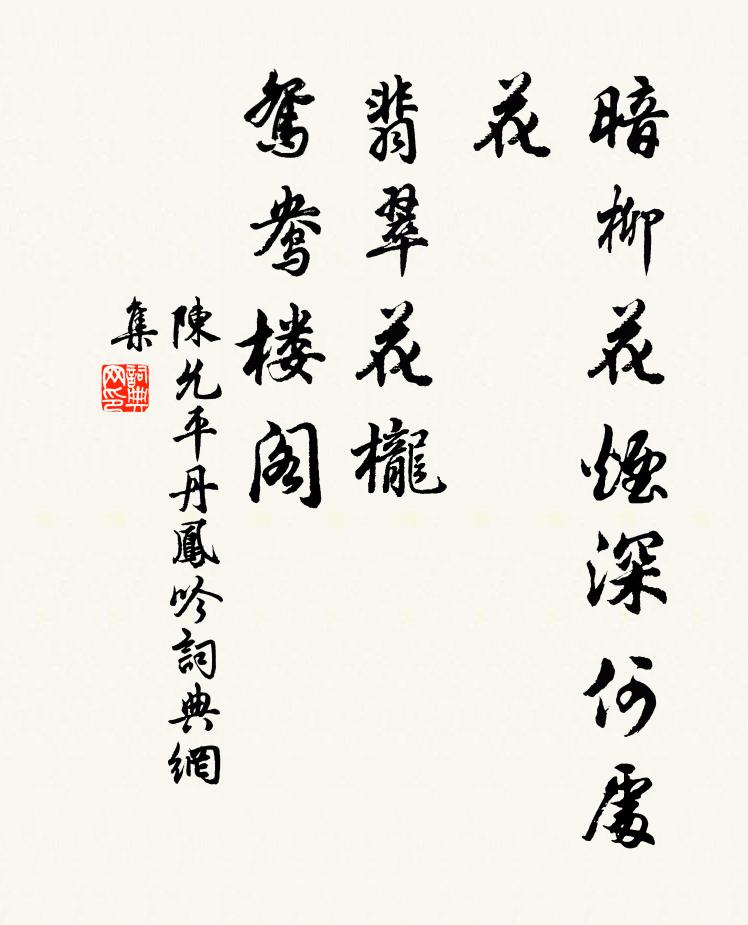 暗柳花煙深何處
花
翡翠花櫳
鴛鴦楼阁
陳允平丹鳳吟詞典網
集
詞典
网印